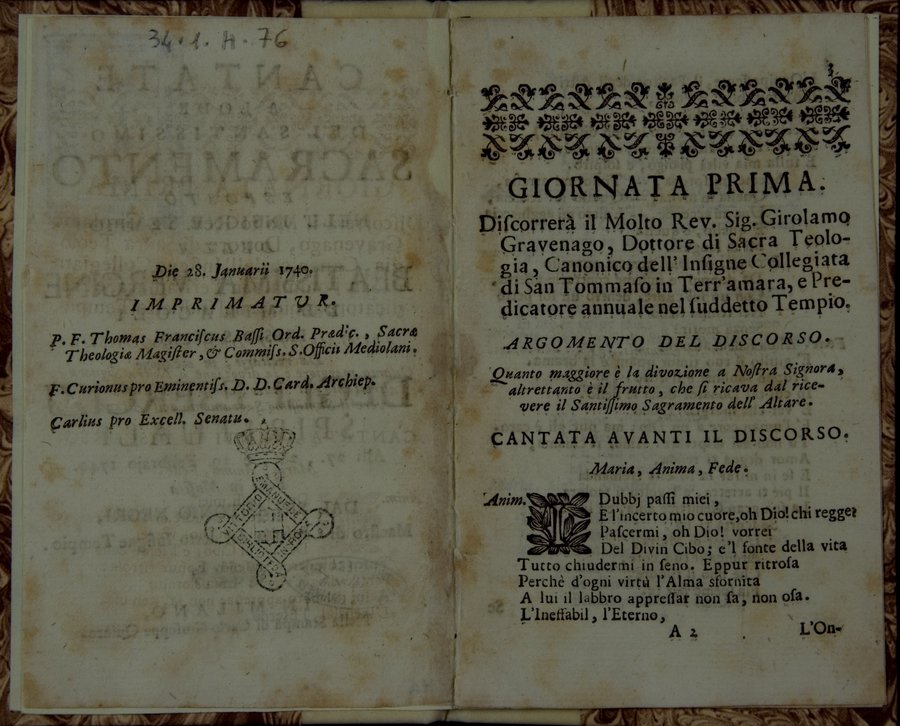 34.1.H.76
Die 28. Januarii 1740.
IMPRIMATUR.
P. F. Thomas Franciſcus Baſſi Ord. Præd'c., Sacræ
Theologiæ Magiſter, & Commiſs. S. Officii Mediolani.
F. Curionus pro Eminentiſs. D. D. Card. Archiep.
Carlius pro Excell. Senatu.
3
GIORNATA PRIMA.
Diſcorrerà il Molto Rev. Sig. Girolamo
Gravenago, Dottore di Sacra Teolo-
gia, Canonico dell' Inſigne Collegiata
di San Tommaſo in Terr'amara, e Pre-
dicatore annuale nel ſuddetto Tempio.
ARGOMENTO DEL DISCORSO.
Quanto maggiore è la divozione a Noſtra Signora,
altrettanto è il frutto, che ſi ricava dal rice-
vere il Santiſſimo Sagramento dell' Altare.
CANTATA AVANTI IL DISCORSO.
Maria, Anima, Fede.
Anim. I Dubbj paſſi miei,
E l'incerto mio cuore, oh Dio! chi regge?
Paſcermi, oh Dio! vorrei
Del Divin Cibo; e'l fonte della vita
Tutto chiudermi in ſeno. Eppur ritroſa
Perchè d'ogni virtù l'Alma sfornita
A lui il labbro appreſſar non ſa, non oſa.
L'Ineffabil, l'Eterno,
A 2 L'On-